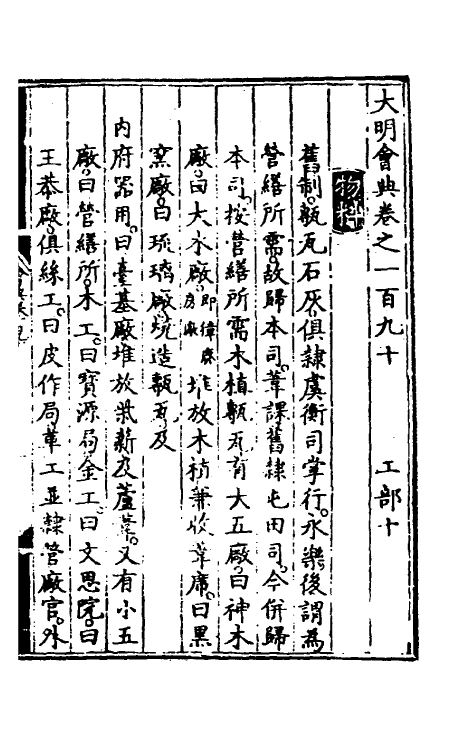 大明會典卷之一百九十 工部十
物料
舊制甎瓦石灰俱隸虞衡司掌行永樂後謂為
營繕所需故歸本司葦課舊隸屯田司今併歸
本司按營繕所需木植甎瓦有大五廠曰神木
廠曰大木廠即獐鹿房廠堆放木植兼收葦席曰黑
窯廠曰琉璃廠燒造甎瓦及
內府器用曰臺基廠堆放柴薪及蘆葦又有小五
廠曰營繕所木工曰寶源局金工曰文思院曰
王恭廠俱絲工曰皮作局革工並隸營廠官外